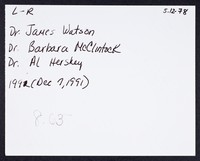 L-R 5.12.78
Dr. James Watson
Dr. Barbara McClintock
Dr. Al Hershey
(Dec 7, 1991)